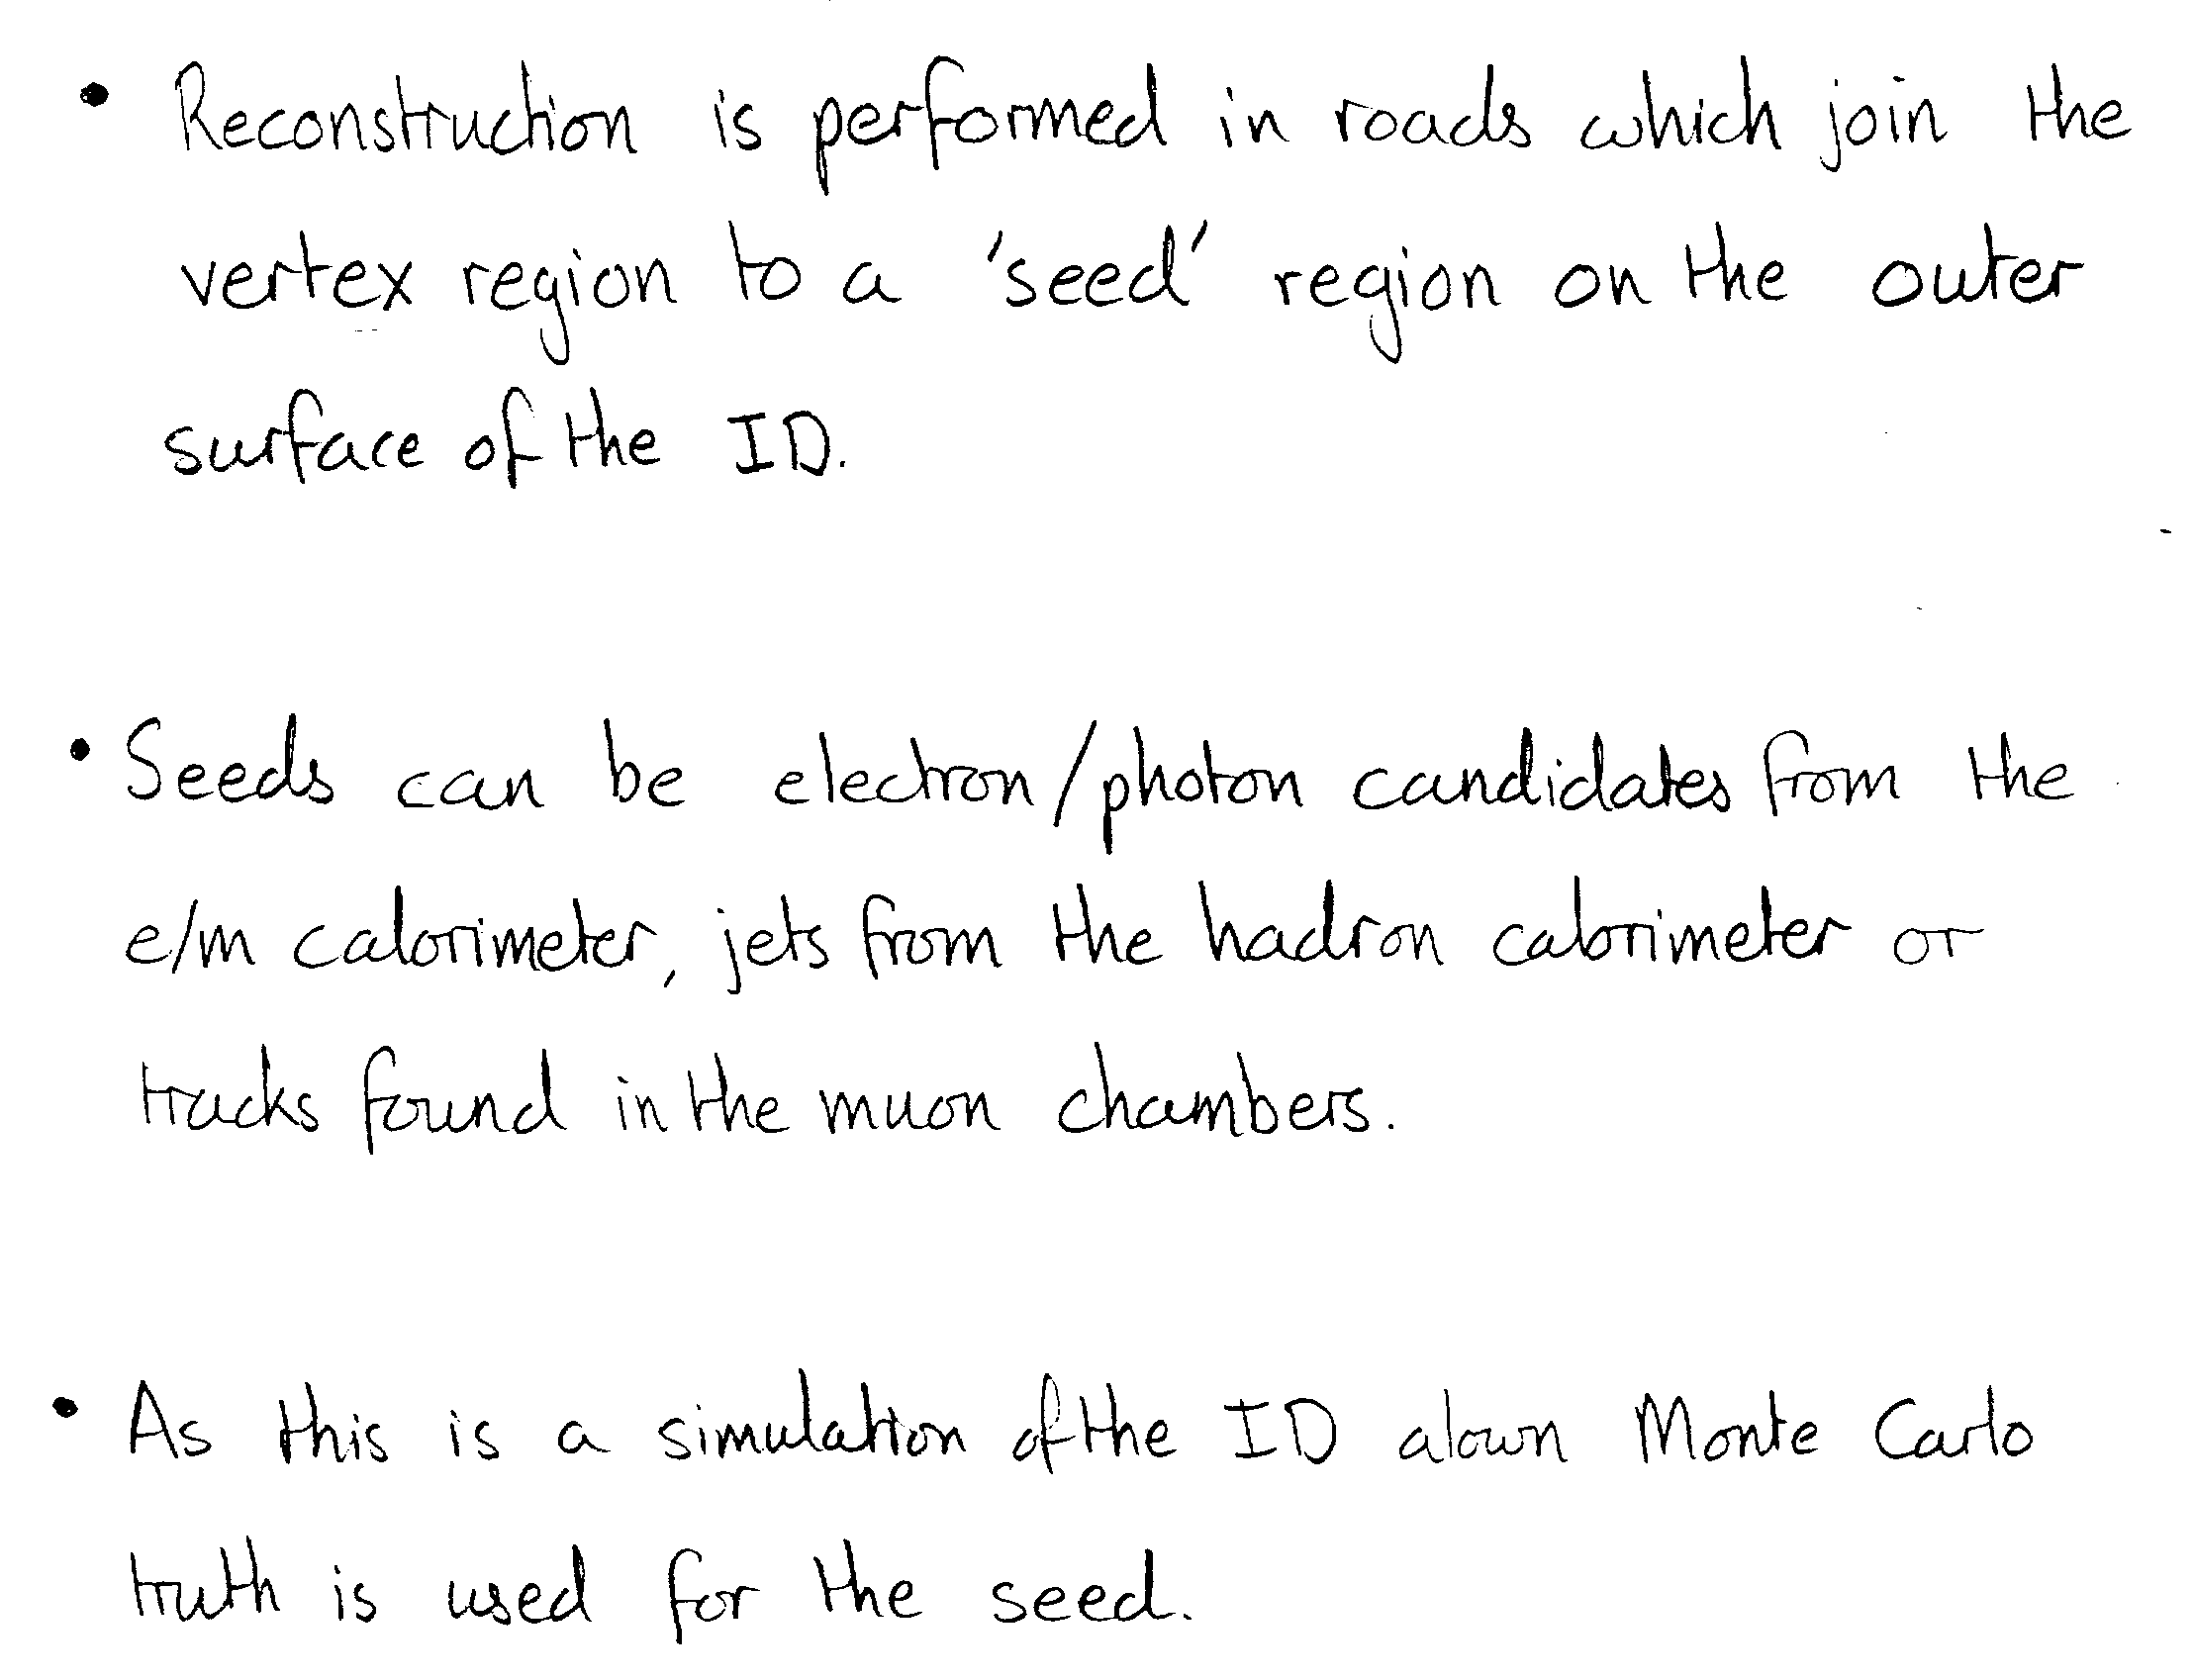 • Reconstruction is performed in roads which join the
vertex region to a 'seed' region on the outer
surface of the ID.
• Seeds can be electron/photon candidates from the
e/m calorimeter, jets from the hadron calorimeter or
tracks found in the muon chambers.
• As this is a simulation of the ID alown Monte Carlo
truth is used for the seed.